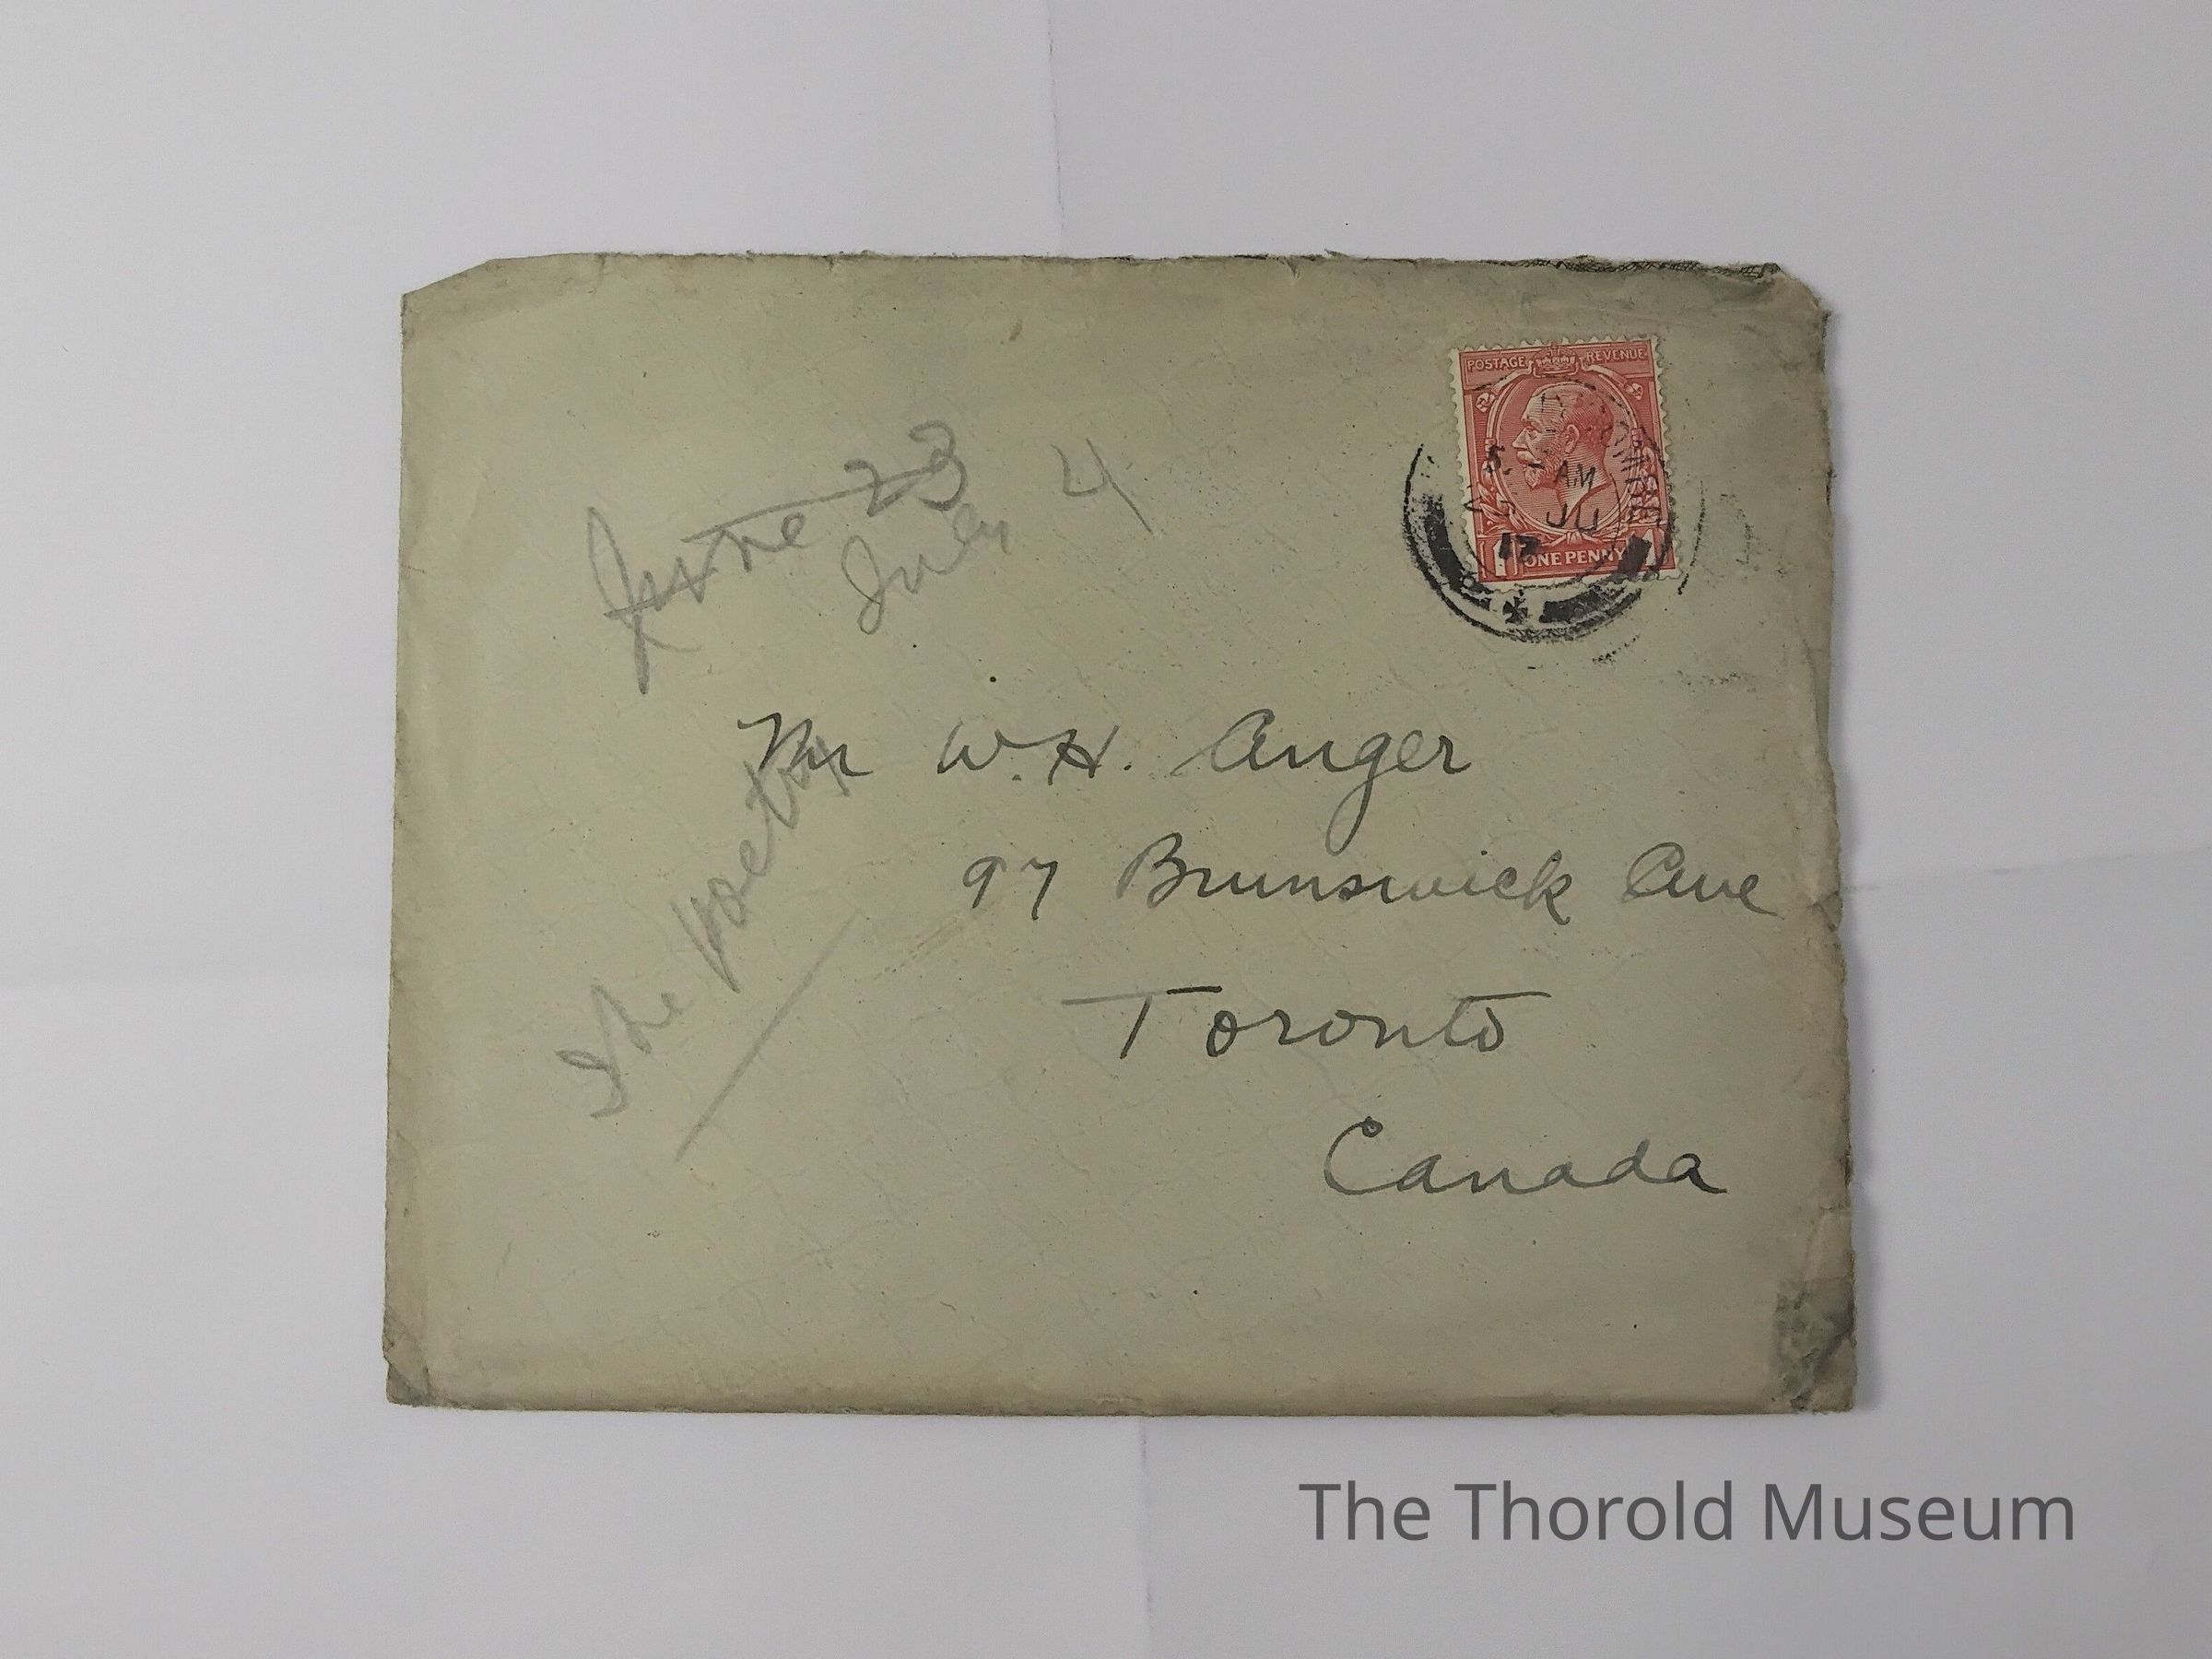 POSTAGE REVENUE
AM
JU
17
1 ONE PENNY 1
June 23
July 4
Mr W. H. Anger
97 Brunswick Ave
Toronto
Canada
The poetry
The Thorold Museum